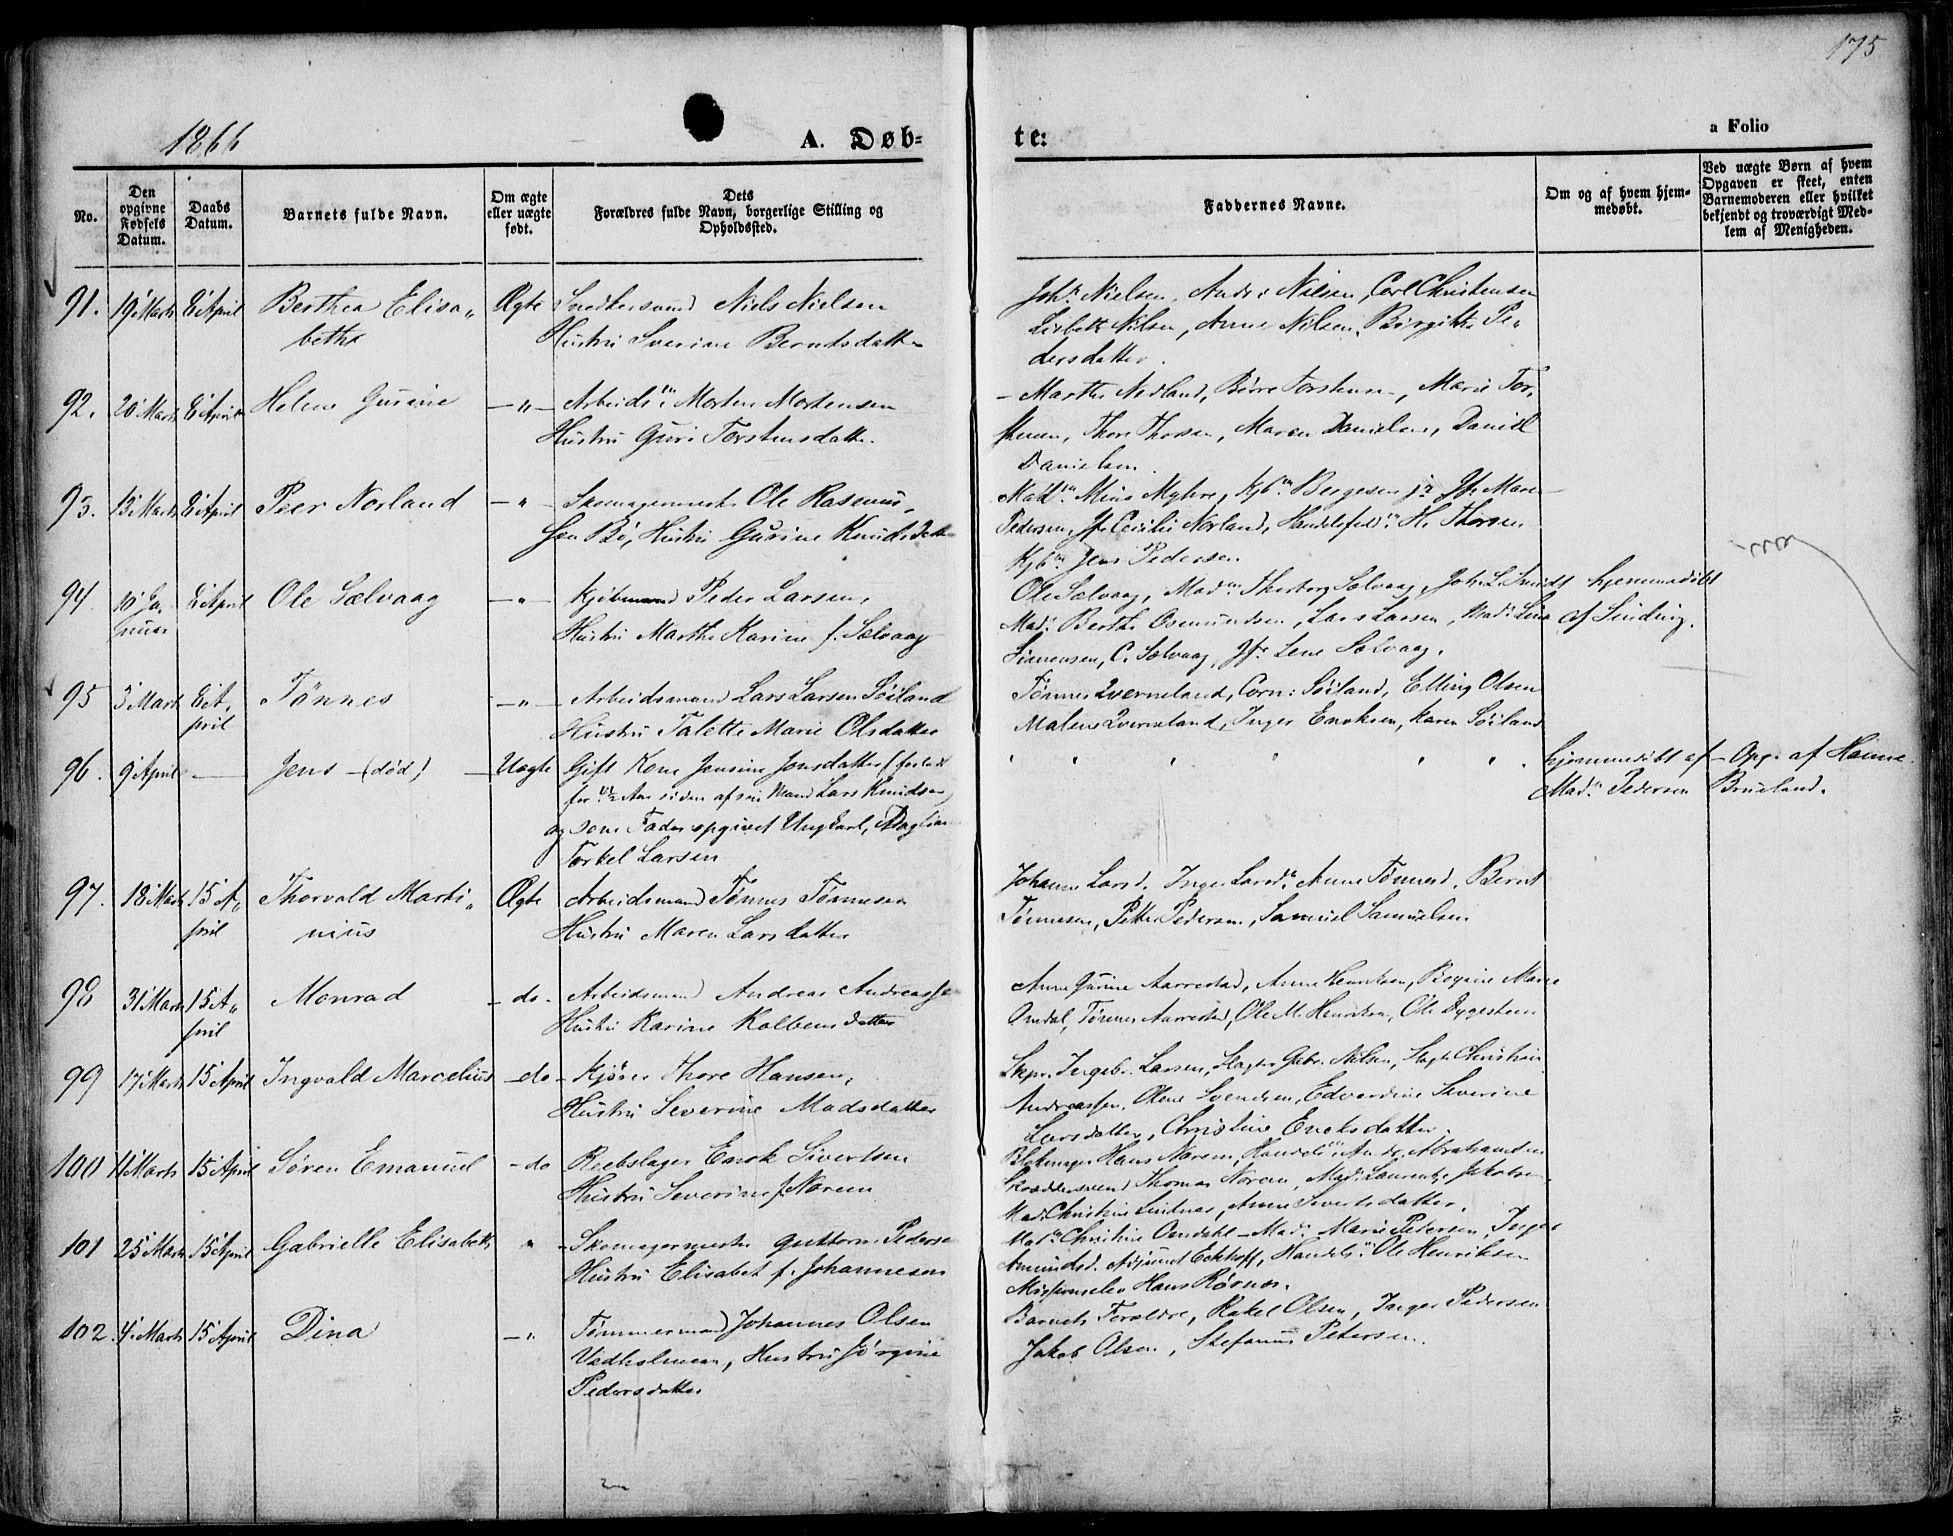 175
1866
A. Døb=
te:
a Folio
No.
Den opgivne Fødsels Datum.
Daabs Datum.
Barnets fulde Navn.
Om ægte eller uægte født.
Dets Forældres fulde Navn, borgerlige Stilling og Opholdssted.
Faddernes Navne.
Om og af hvem hjemmedøbt.
Ved uægte Børn af hvem Opgaven er skeet, enten Barnemoderen eller hvilket bekjendt og troværdigt Medlem af Menigheden.
91. 19' Marts 8' April Berthea Elisa„ Ægte Snedkersvend Niels Nielsen
betha Hustru Sverine Berntsdatter
Nielsen, Nilsen, Carl Christensen
Lisbeth Nilsen, Anne Nilsen, Birgitte Pe„
dersdatter.
92. 20' Marts 8' April Helene Gurine —„— Arbeidsm. Morten Mortensen
Hustru Guri Torstensdatter.
Marthe Nedland, Børre Torstensen, Marie Tor„
stensen, Thore Thorsen, Maren Danielsen, Daniel
Danielsen.
93. 13' Marts 8' April Peer Norland —„— Skomagermester Ole Rasmus„
sen Bø, Hustru Gurine Knudsdatter
Mad. Mina Myhre, Kjbm. Bergesen jr. Jfr. Maren
Pedersen, Jfr. Cecilie Norland, Handelsfuldm. H. Thorsen
Kjbm. Jens Pedersen
94. 10' Ja„ 8' April Ole Sælvaag —„— Kjøbmand Peder Larsen,
nuar Hustru Marthe Karine f. Sælvaag
Ole Sælvaag, Mad. Thorborg Sælvaag, Joh. L. Smidt hjemmedøbt
Mad. Berthe Osmundsen, Lars Larsen, Mad. Lina af Sinding.
Simonsen, C. Sælvaag, Jfr. Lene Sælvaag.
95 3' Marts 8' A„ Tönnes —„— Arbeidsmand Lars Larsen Söiland
pril Hustru Talette Marie Olsdatter
Tönnes Qverneland, Corn: Söiland, Elling Olsen
Malene Qverneland, Inger Enoksen, Karen Söiland
96. 9' April — Jens — (død) — Uægte Gift Kone Jensine Jonsdatter (forladt
for Aar siden af sin Mand Lars Knudsen)
og som Fader opgivet Ungkarl,
Torkel Larsen
hjemmedøbt af Mad. Pedersen
Opg. af Hanne Brueland.
97. 18' Marts 15' A„ Thorvald Marti„ Ægte Arbeidsmand Tönnes Tönnesen
pril nius Hustru Maren Larsdatter
Johanne Larsd. Inger Larsd. Anne Tönnesd. Bernt
Tönnesen, Petter Pedersen, Samuel Samuelsen.
98 31' Marts 15' A„ Monrad — do — Arbeidsmand Andreas Andreassen
pril Hustru Karine Kolbensdatter
Anne Gurine Aarrestad, Anne Henriksen, Marie
Omdal, Tönnes Aarrestad, Ole M. Henriksen, Ole Dygesteen
99 17' Marts 15' April Ingvald Marcelius — do — Kjører Thore Hansen,
Hustru Severine Madsdatter
Skpr. Ingebr. Larsen, Slagter Gabr. Nilsen, Slagt. Christian
Andreassen, Olene Svendsen, Edvardine Severine
Larsdatter, Christine Enoksdatter.
100 11' Marts 15' April Søren Emanuel — do Reebslager Enok Sivertsen
Hustru Severine f. Norem
Blokmager Hans Norem, Handelsm. Abrahamsen
Skræddersvend Thomas Norem, Mad. Laurentze Jakobsen,
Mad. Christine Lindnæs, Anne Sivertsdatter.
101 25' Marts 15' April Gabrielle Elisabeth „ Skomagermester Guttorm Pedersen
Hustru Elisabet f. Johannesen
Mad. Christine Omdahl — Mad. Marie Pedersen, Inger
Amundsd. Adjunct Eckhoff, Handelsm. Ole Henriksen
Missionselev Hans Røsnes.
102. 4' Marts 15' April Dina —„ Tömmermand Johannes Olsen
Vadholmen, Hustru Jørgine
Pedersdatter
Barnets Forældre, Rakel Olsen, Inger Pedersen
Jakob Olsen, Stefanus Petersen.